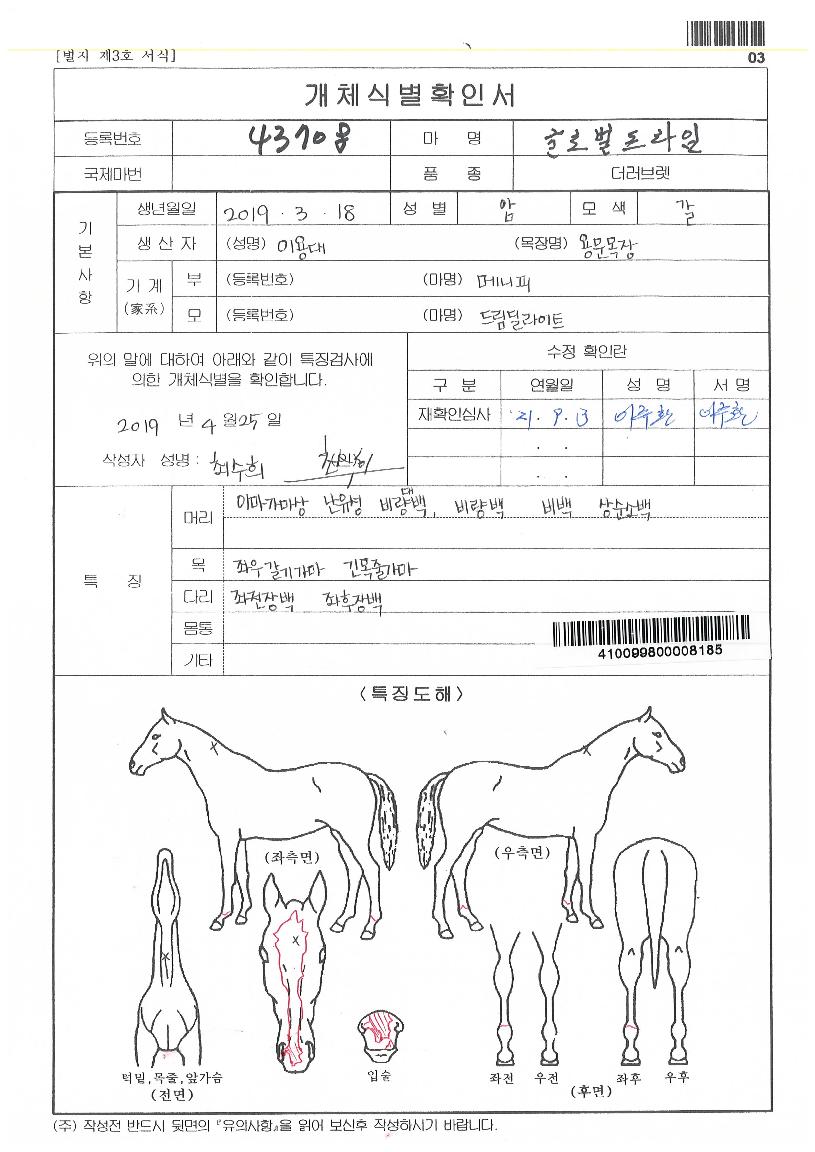 [별지 제3호 서식]
03
개체식별확인서
등록번호 마 명 글로벌드라임
국제마번 품 종 더러브렛
기본사항
생년월일 2019 . 3 . 18 성 별 암 모 색 갈
생 산 자 (성명) 이용대 (목장명) 용문목장
기 계 (家系)
부 (등록번호) (마명) 메니피
모 (등록번호) (마명) 드림딜라이트
위의 말에 대하여 아래와 같이 특징검사에
의한 개체식별을 확인합니다.
2019 년 4 월 25 일
작성사 성명 : 최수희
수정 확인란
구 분 연월일 성 명 서 명
재확인심사 '21. 9. 13 이주환
. .
. .
특 징
머리 이마가마상 난유성 비량백, 비량백 비백 상순소백
목 좌우갈기가마 긴목줄가마
다리 좌전장백 좌후장백
몸통
기타
410099800008185
<특징도해>
(좌측면)
(우측면)
턱밑,목줄,앞가슴
(전면)
입술
좌전 우전
좌후 우후
(후면)
(주) 작성전 반드시 뒷면의 『유의사항』을 읽어 보신후 작성하시기 바랍니다.